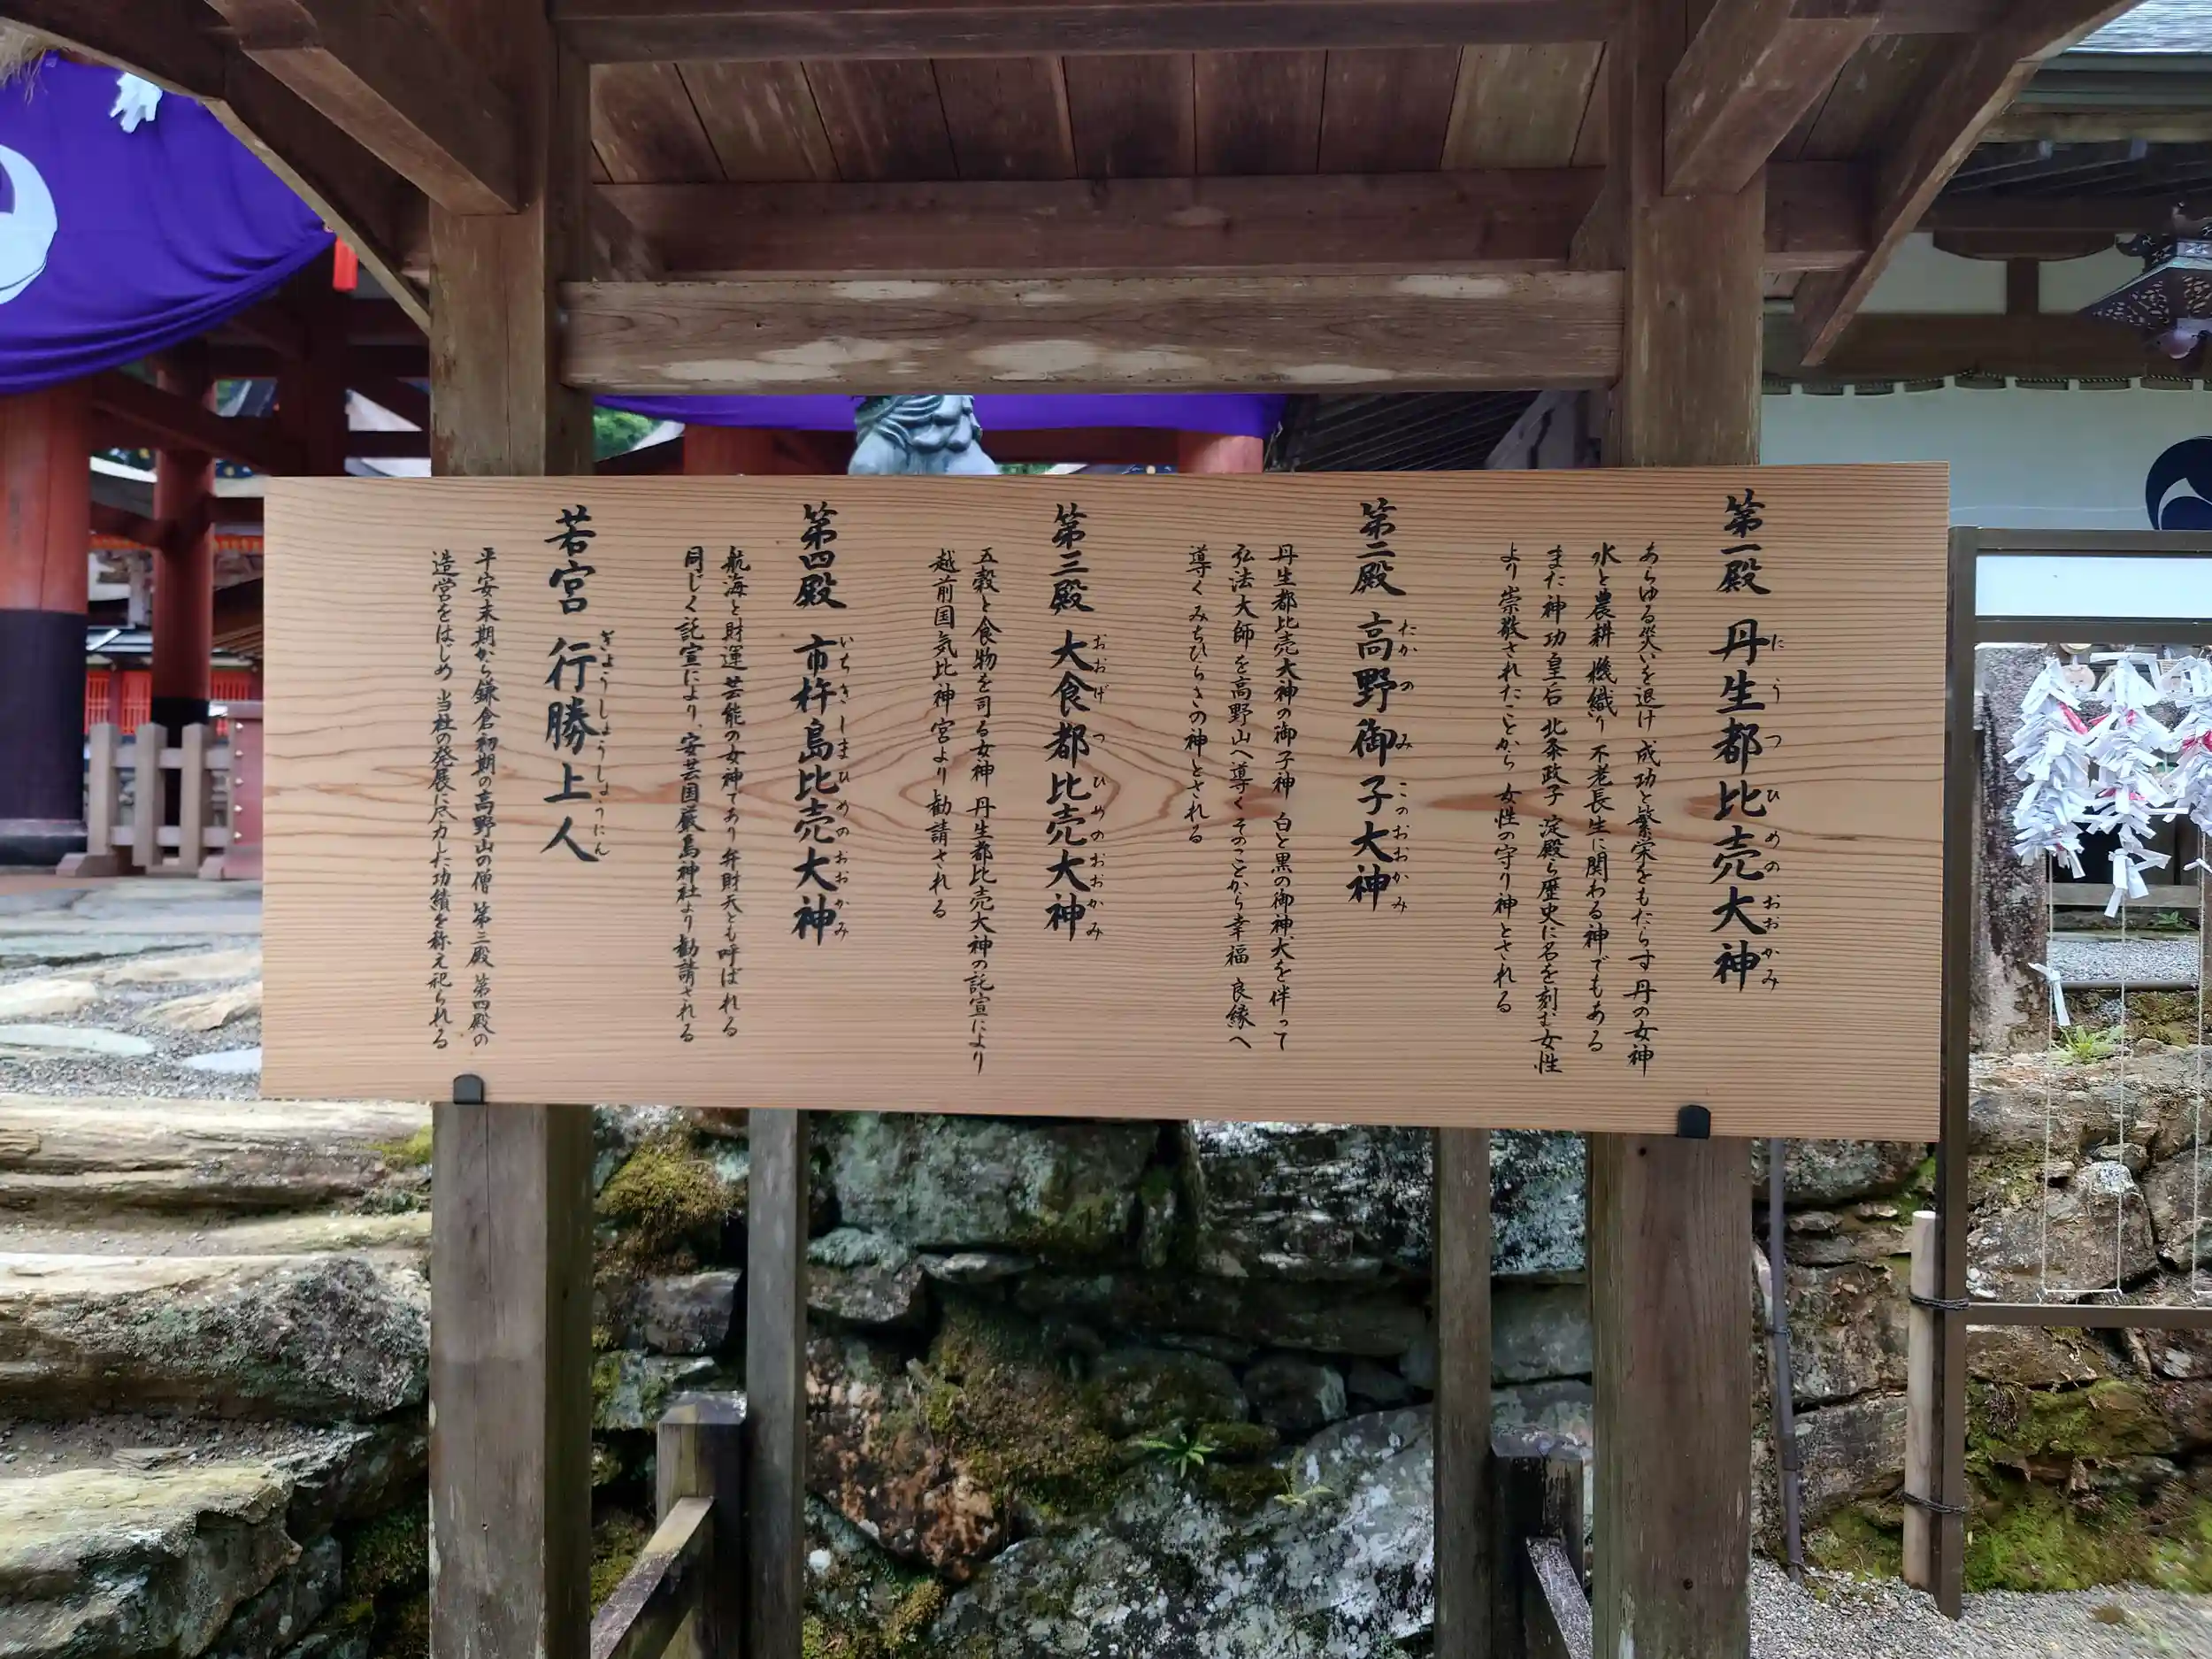 第一殿 丹生都比売大神
にうつひめのおおかみ
あらゆる災いを退け 成功と繁栄をもたらす 丹の女神
水と農耕 機織り 不老長生に関わる神でもある
また神功皇后 北条政子 淀殿ら歴史に名を刻む女性
より崇敬されたことから 女性の守り神とされる
第二殿 高野御子大神
たかのみこのおおかみ
丹生都比売大神の御子神 白と黒の御神犬を伴って
弘法大師を高野山へ導く そのことから幸福 良縁へ
導く みちびらきの神とされる
第三殿 大食都比売大神
おおげつひめのおおかみ
五穀と食物を司る女神 丹生都比売大神の託宣により
越前国気比神宮より勧請される
第四殿 市杵島比売大神
いちきしまひめのおおかみ
航海と財運 芸能の女神であり 弁財天とも呼ばれる
同じく託宣により、安芸国厳島神社より勧請される
若宮 行勝上人
ぎょうしょうしょうにん
平安末期から鎌倉初期の高野山の僧 第三殿 第四殿の
造営をはじめ 当社の発展に尽力した功績を称え祀られる